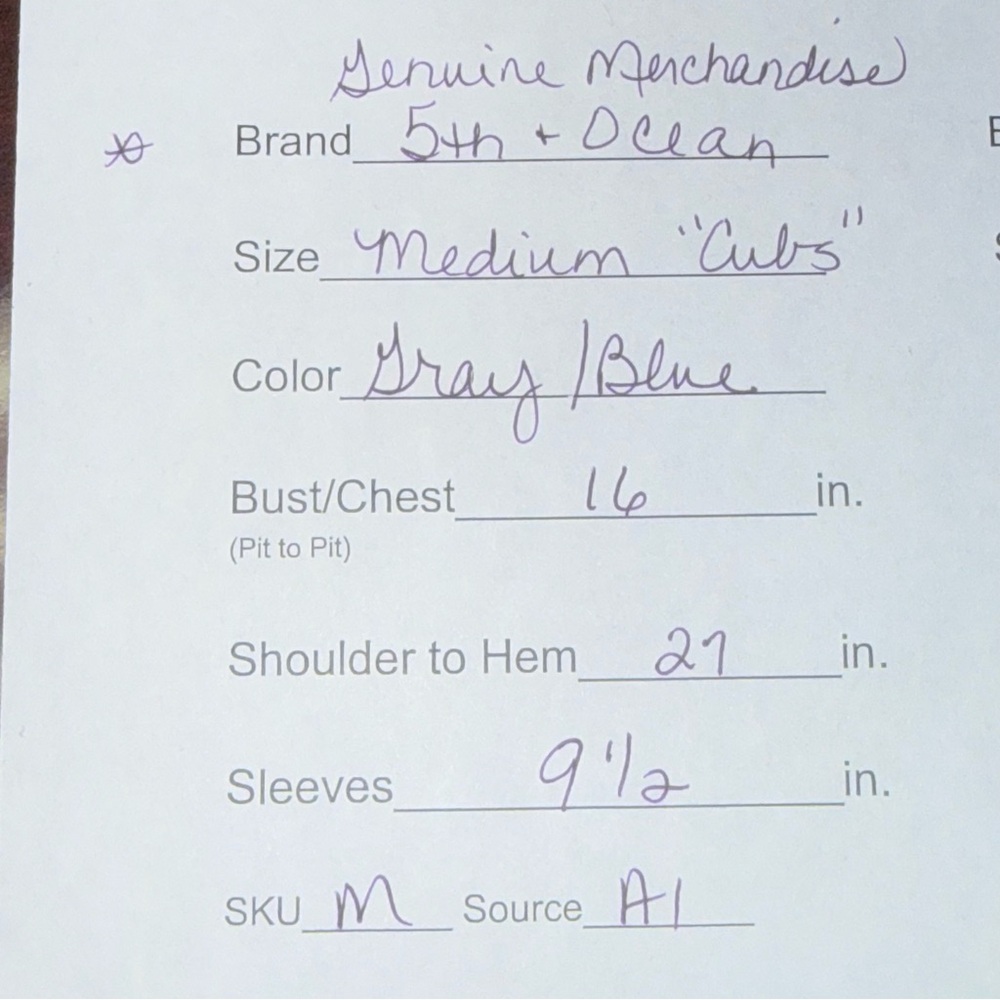 Genuine Merchandise
Brand 5th + Ocean
Size Medium "Cubs"
Color Gray/Blue
Bust/Chest 16 in.
(Pit to Pit)
Shoulder to Hem 27 in.
Sleeves 9 1/2 in.
SKU M Source A1